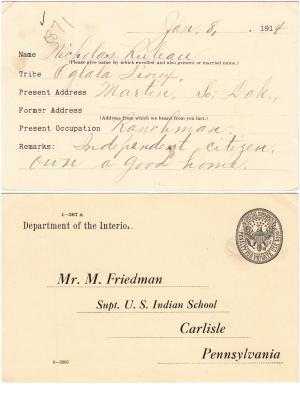 5671
Jan. 8, 1914
Name Nicholas Ruleau
(Please give name by which enrolled and also present or married name.)
Tribe Oglala Sioux.
Present Address Martin, So. Dak.,
Former Address
(Address from which we heard from you last.)
Present Occupation Ranchman.
Remarks: Independent citizen,
own a good home.
1—567 a
Department of the Interior.
Mr. M. Friedman
Supt. U. S. Indian School
Carlisle
Pennsylvania
PENALTY FOR PRIVATE USE $300